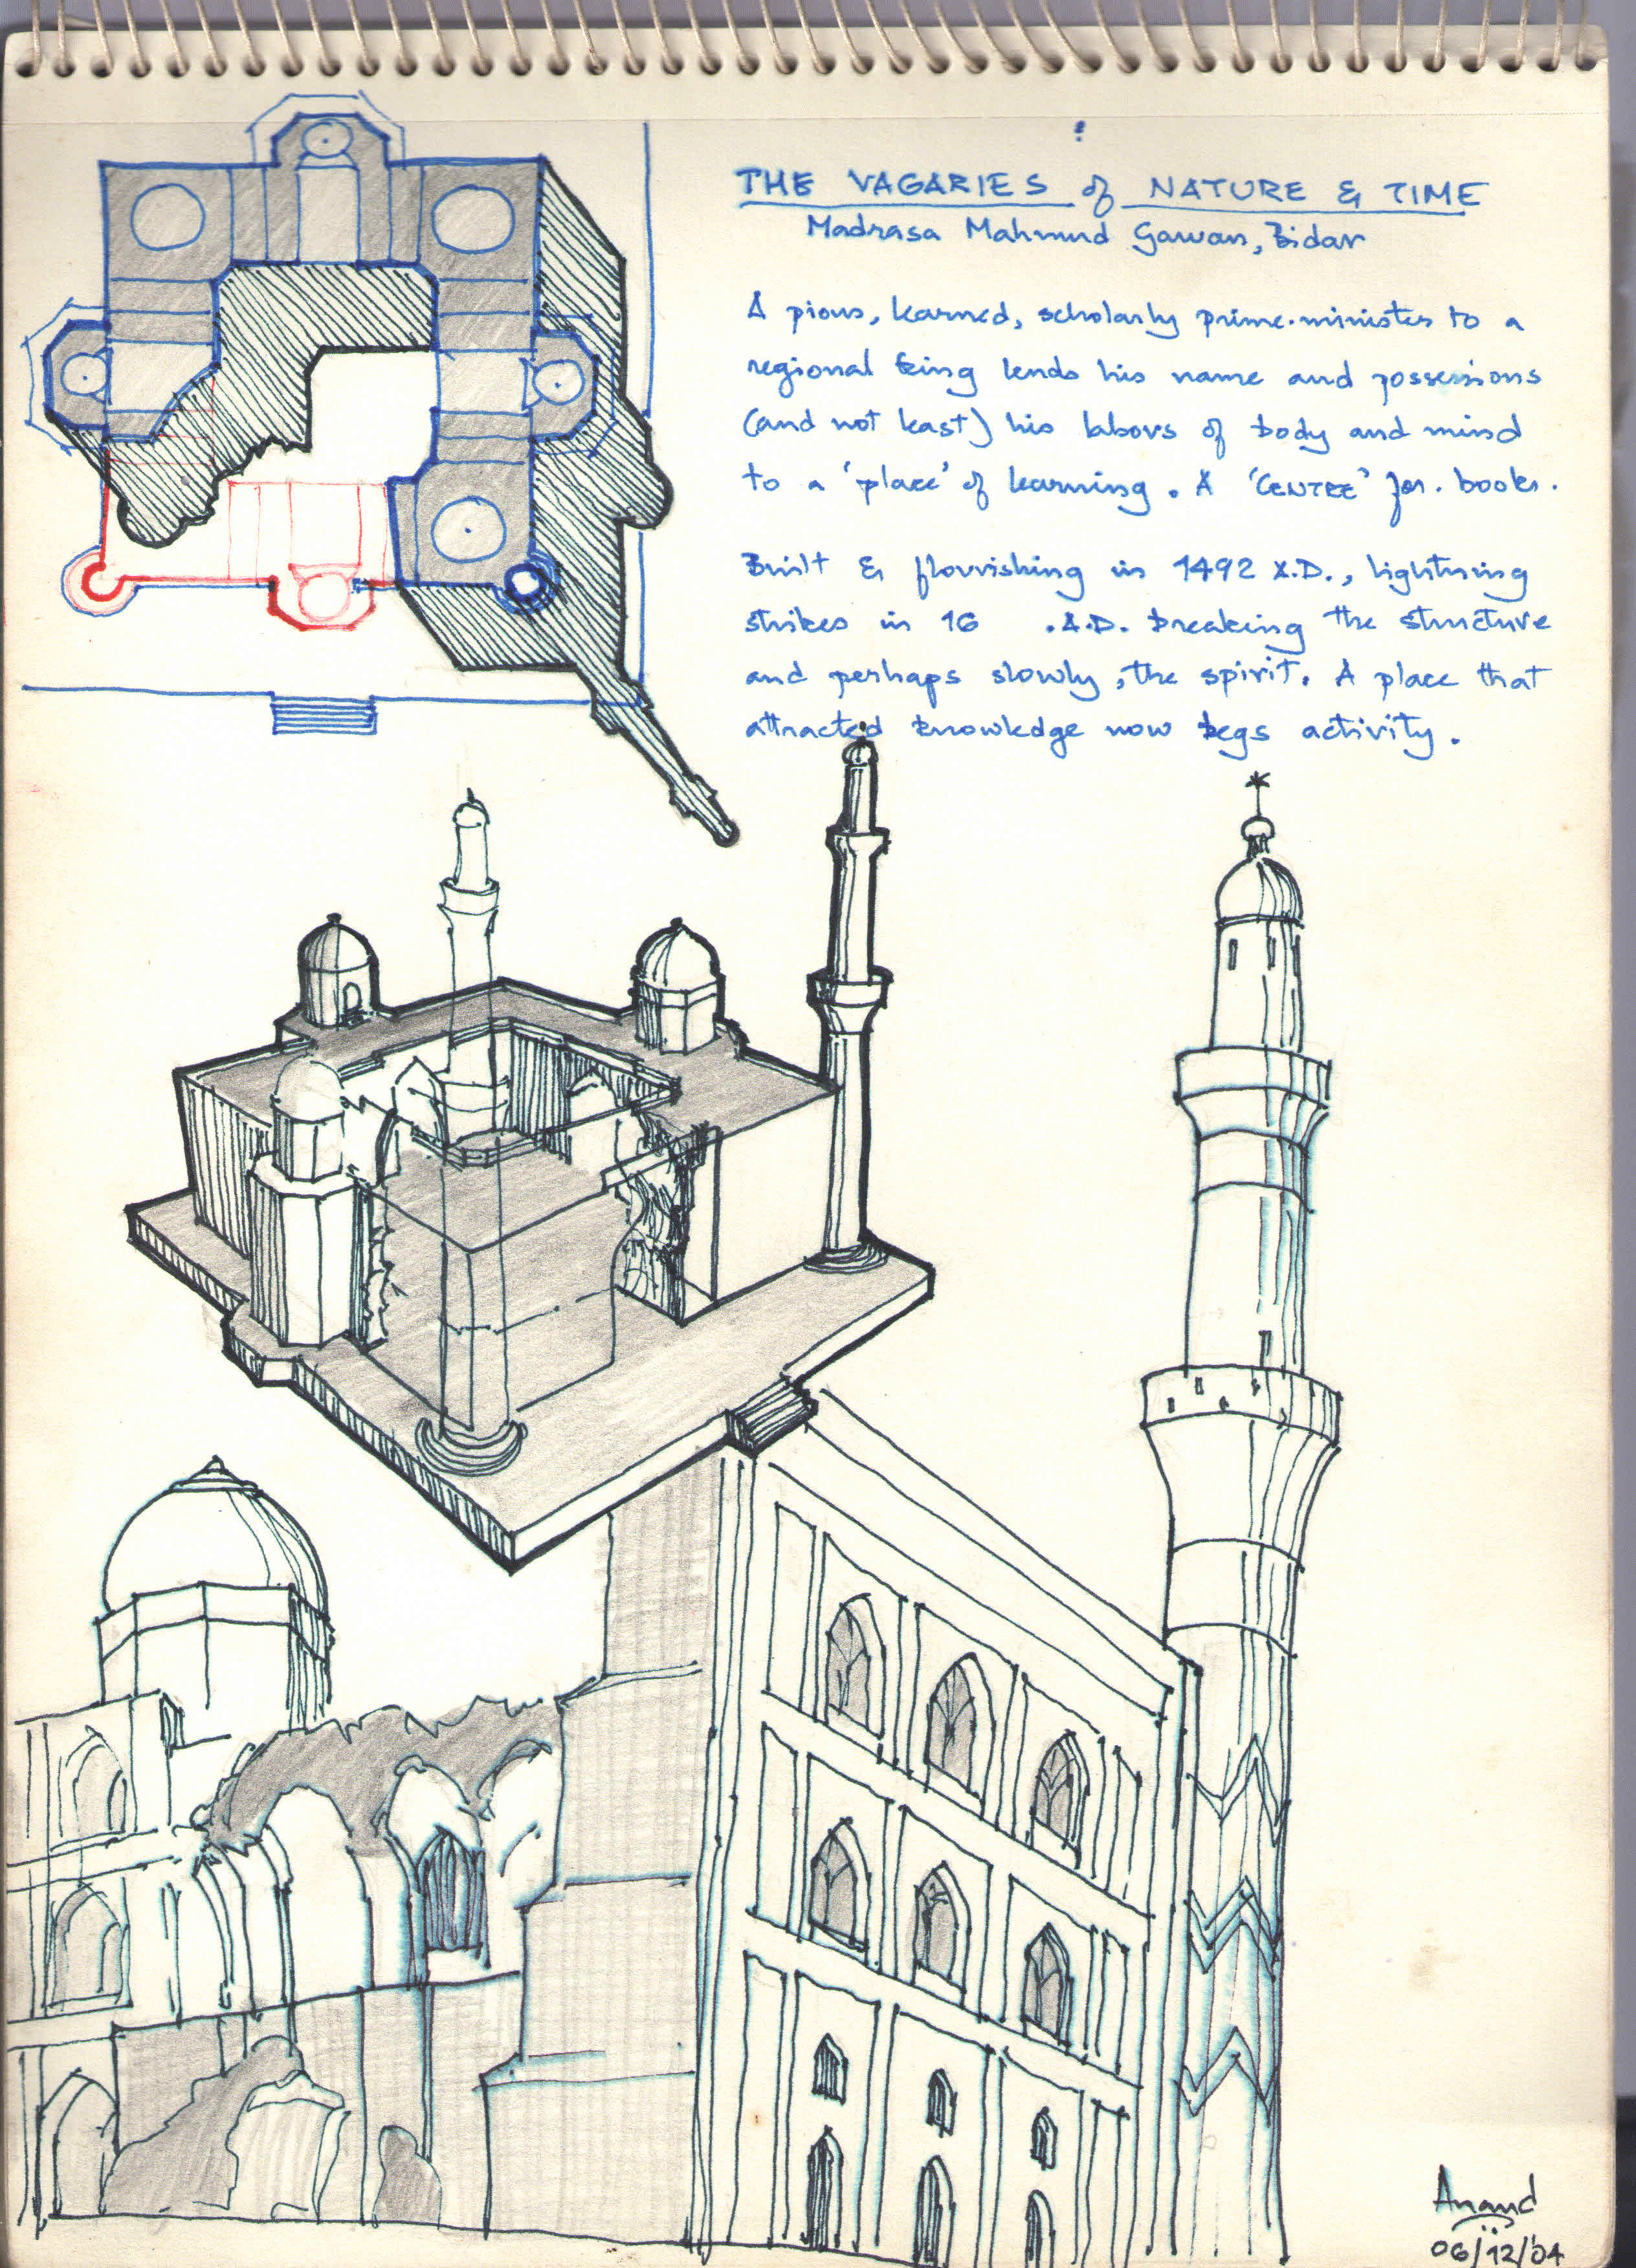 THE VAGARIES of NATURE & TIME
Madrasa Mahmud Gawan, Bidar
A pious, learned, scholarly prime-minister to a
regional king lends his name and possessions
(and not least) his labors of body and mind
to a 'place' of learning. A 'CENTRE' for. books.
Built & flourishing in 1492 A.D., lightning
strikes in 16 .A.D. breaking the structure
and perhaps slowly, the spirit. A place that
attracted knowledge now begs activity.
Anand
06/12/04